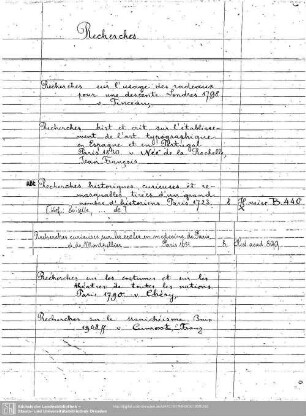 Recherches
Recherches sur l'usage des radeaux
pour une descente Londres 1798
v. Tinseau
Recherches hist et crit sur l'établisse-
ment de l'art typographique
en Espagne et en Portugal
Paris v. Née de la Rochelle,
Jean François
Recherches historiques, curieuses et re-
marquables, tirées d'un grand
nombre d'historiens Paris 1723. 8
B. 440
Recherches curieuses sur les écoles en médecine de Paris
et de Montpellier Paris 8.
Recherches sur les costumes et sur les
théâtres de toutes les nations
Paris 1790. v. Chéry
Recherches sur le manichéisme Brux
1908 ff v. Cumont, Franz